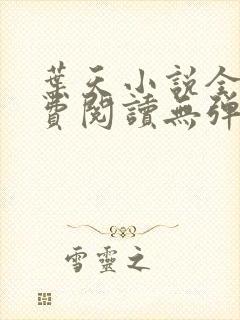 葉天小說全
費閱讀無彈
雪靈之